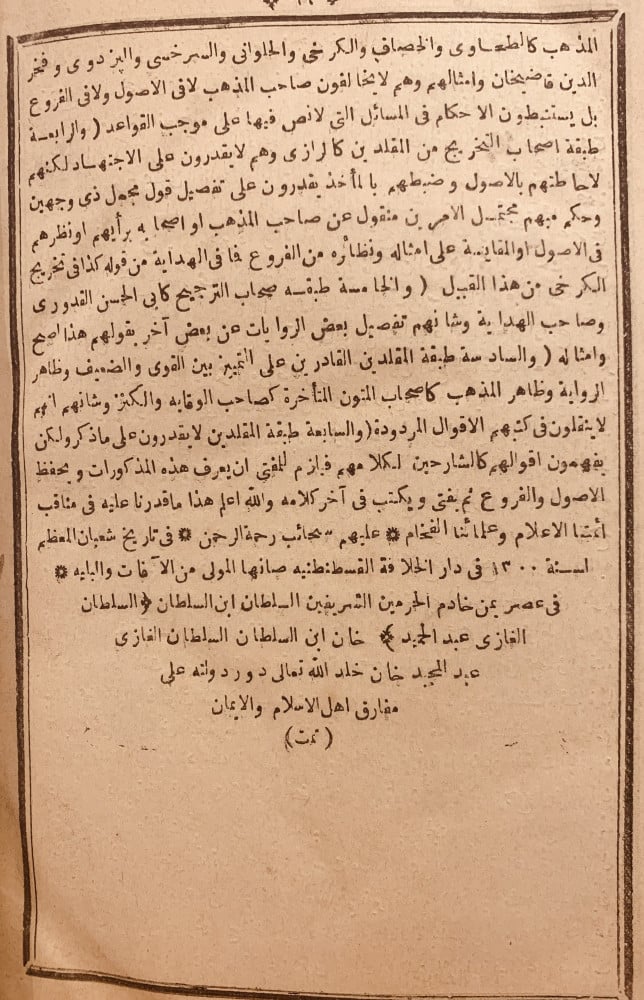 المذهب كالطحاوى والخصاف والكرخى والحلوانى والسرخسى والبزدوى وفخر
الدين قاضيخان وامثالهم وهم لا يخالفون صاحب المذهب لا فى الاصول ولا فى الفروع
بل يستنبطون الاحكام فى المسائل التى لا نص فيها على موجب القواعد ( والرابعة
طبقة اصحاب التخريج من المقلدين كالرازى وهم لا يقدرون على الاجتهاد لكنهم
لاحاطتهم بالاصول وضبطهم بالمأخذ يقدرون على تفصيل قول مجمل ذى وجهين
وحكم مبهم محتمل الامرين منقول عن صاحب المذهب او اصحابه برأيهم او نظرهم
فى الاصول او المقايسة على امثاله ونظائره من الفروع فما فى الهداية من قوله كذا فى تخريج
الكرخى من هذا القبيل ( والخامسة طبقه صحاب الترجيح كابى الحسن القدورى
وصاحب الهداية وشانهم تفصيل بعض الروايات عن بعض آخر بقولهم هذا اصح
وامثاله ( والسادسة طبقة المقلدين القادرين على التمييز بين القوى والضعيف وظاهر
الرواية وظاهر المذهب كاصحاب المتون المتأخرة كصاحب الوقايه والكنز وشانهم انهم
لا ينقلون فى كتبهم الاقوال المردودة ( والسابعة طبقة المقلدين لا يقدرون على ما ذكر ولكن
يفهمون اقوالهم كالشارحين لكلامهم فيلزم للمفتى ان يعرف هذه المذكورات ويحفظ
الاصول والفروع ثم يفتى ويكتب فى آخر كلامه والله اعلم هذا ما قدرنا عليه فى مناقب
ائمتنا الاعلام وعلمائنا الفخام * عليهم سحائب رحمة الرحمن * فى تاريخ شعبان المعظم
لسنة ١٣٠٠ فى دار الخلافة القسطنطنيه صانها المولى من الآفات والبليه *
فى عصر يمن خادم الحرمين الشريفين السلطان ابن السلطان ﴿ السلطان
الغازى عبد الحميد ﴾ خان ابن السلطان السلطان الغازى
عبد المجيد خان خلد الله تعالى دور دولته على
مفارق اهل الاسلام والايمان
( تمت )